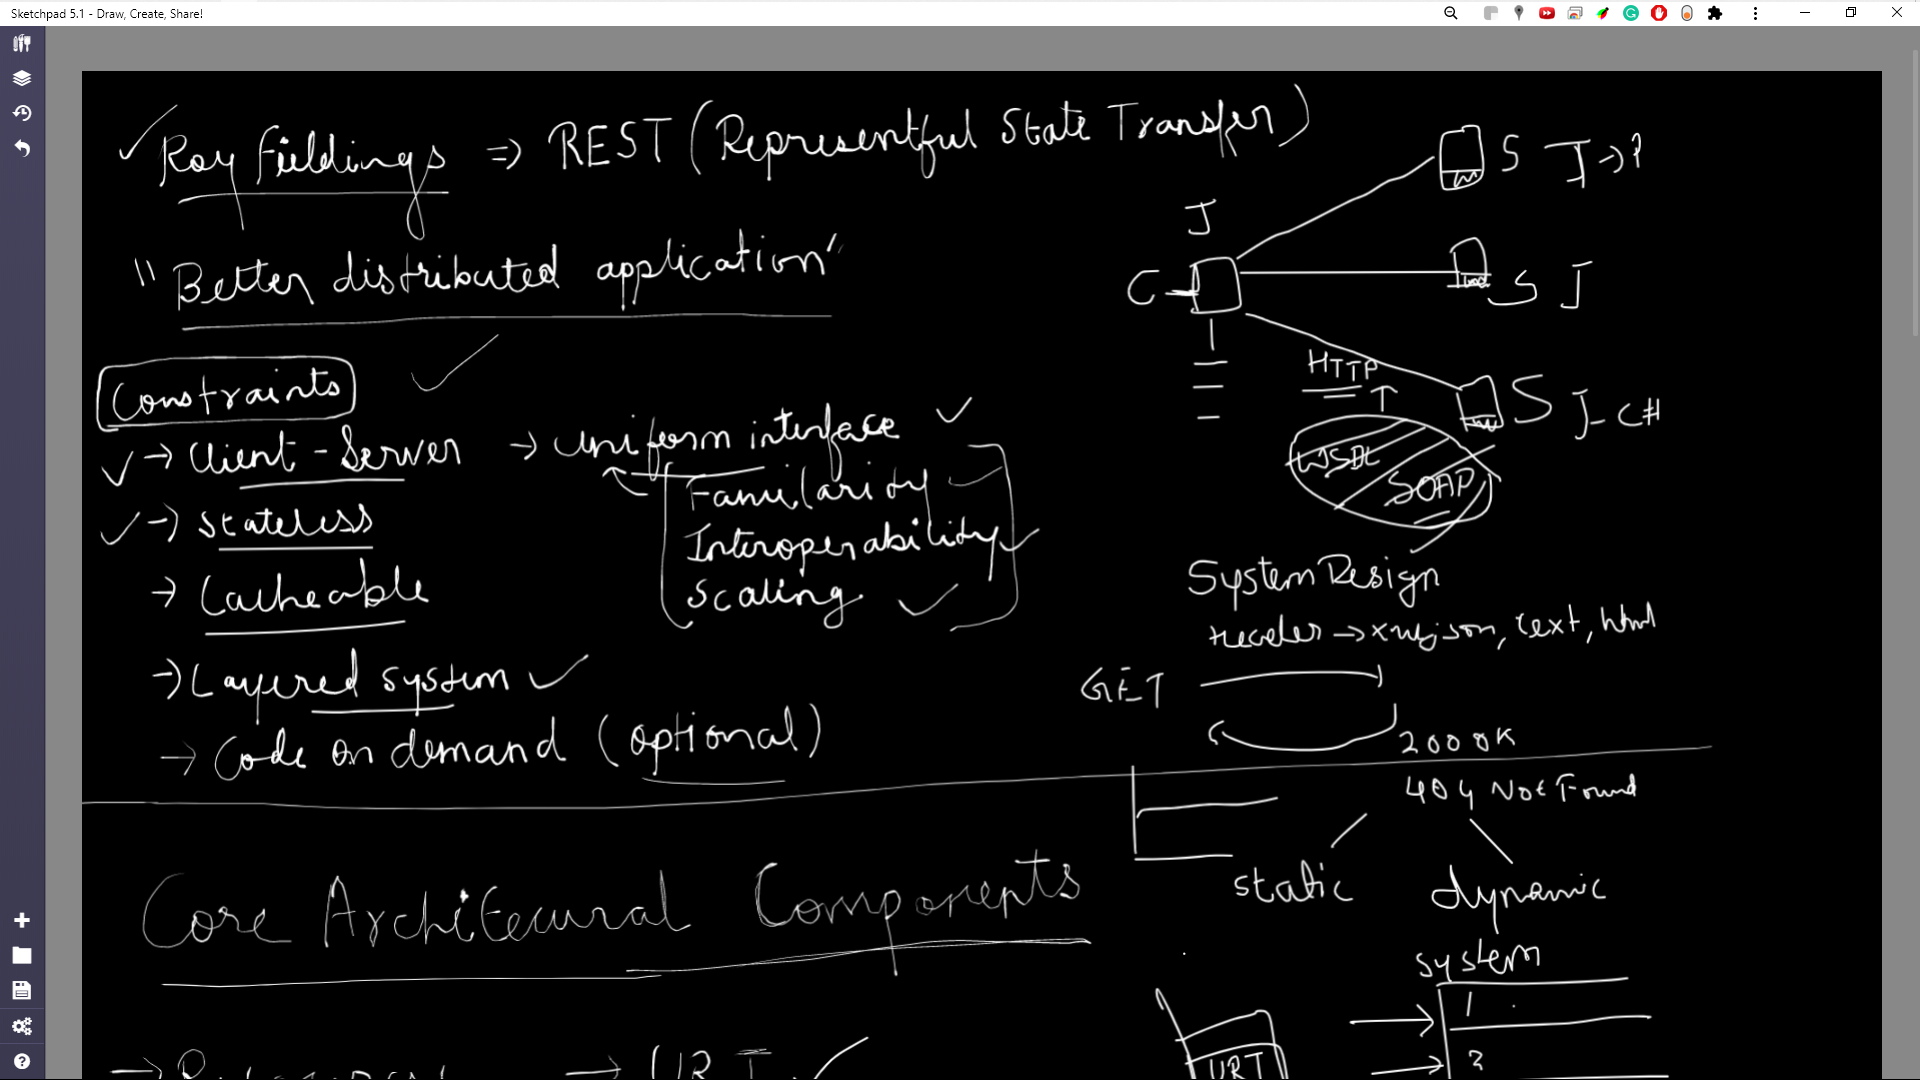 Sketchpad 5.1 - Draw, Create, Share!
Roy Fieldings => REST (Representful State Transfer)
"Better distributed application"
Constraints
-> Client - Server
-> Stateless
-> Cacheable
-> Layered system
-> Code on demand (optional)
-> uniform interface
Familarity
Interoperability
Scaling
S J -> P
J
C
S J
S J - C#
HTTP
T
WSDL
SOAP
System Design
header -> xml, json, text, html
GET
200 OK
404 Not Found
static
dynamic
system
1
2
URI
Core Architecural Components
-> URI